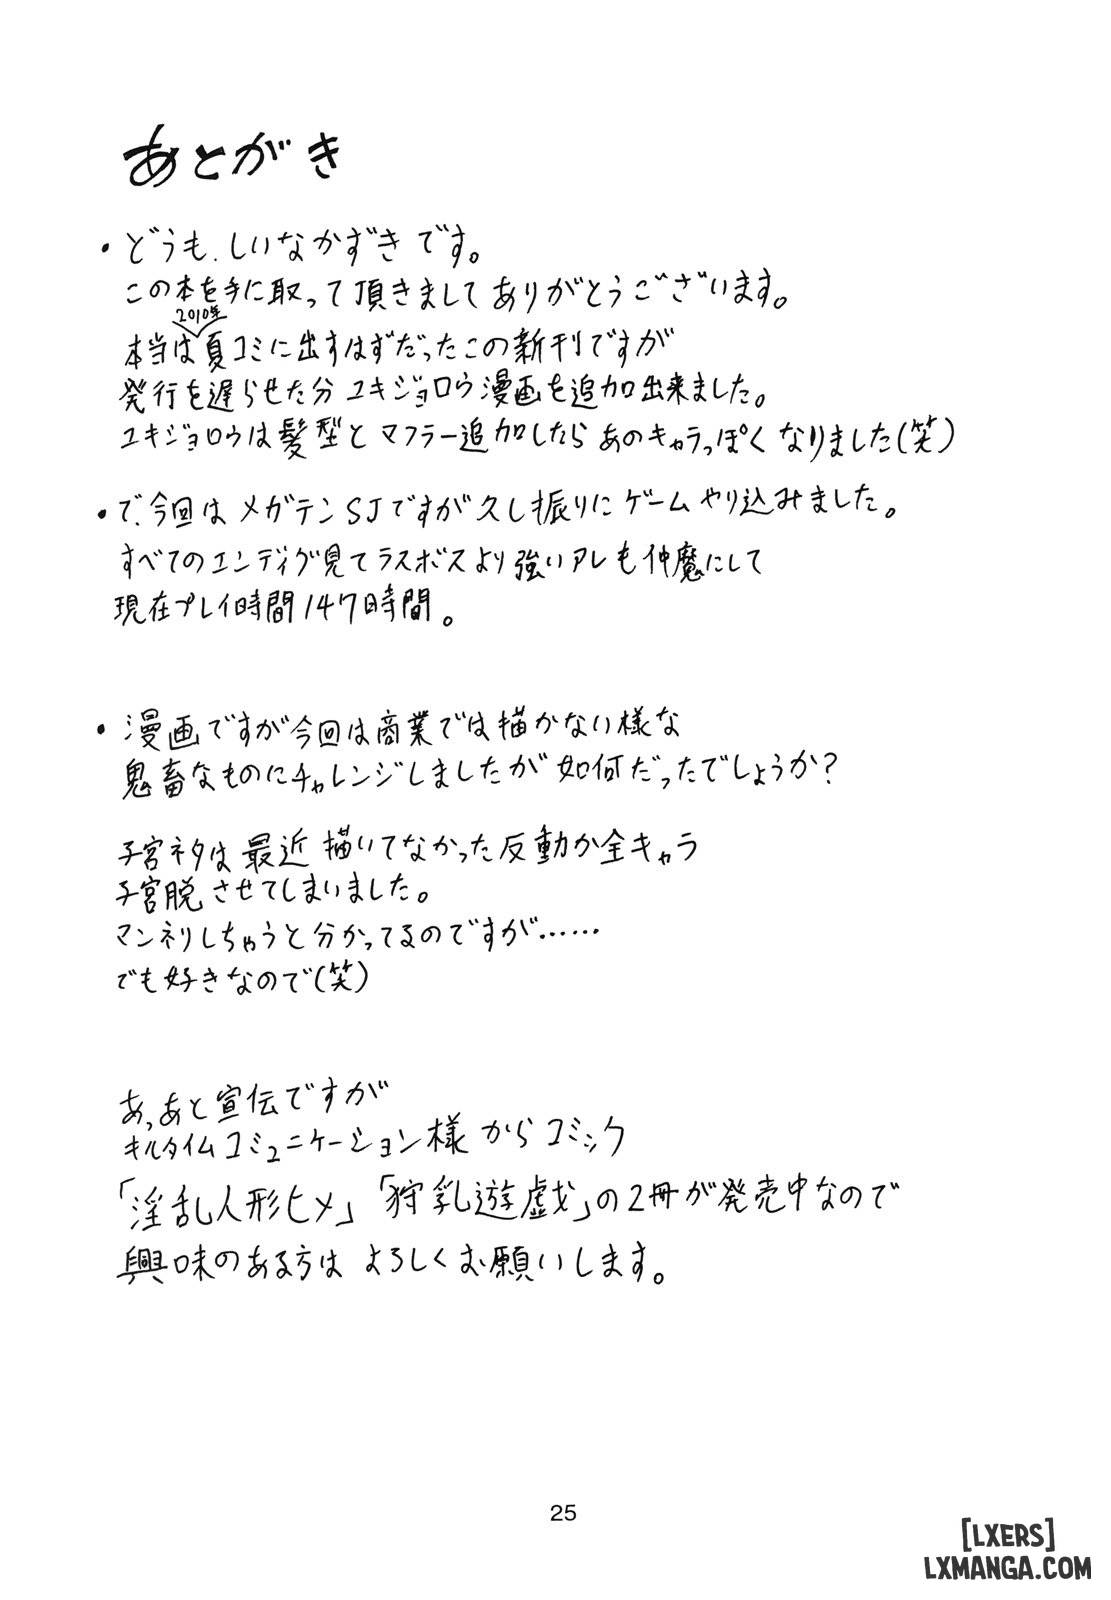 あとがき
・どうも、しいなかずきです。
この本を手に取って頂きましてありがとうございます。
2010年
本当は夏コミに出すはずだったこの新刊ですが
発行を遅らせた分ユキジョロウ漫画を追加出来ました。
ユキジョロウは髪型とマフラー追加したらあのキャラっぽくなりました(笑)
・で、今回はメガテンSJですが久し振りにゲームやり込みました。
すべてのエンディグ見てラスボスより強いアレも仲魔にして
現在プレイ時間147時間。
・漫画ですが今回は商業では描かない様な
鬼畜なものにチャレンジしましたが如何だったでしょうか?
子宮ネタは最近描いてなかった反動か全キャラ
子宮脱させてしまいました。
マンネリしちゃうと分かってるのですが……
でも好きなので(笑)
あっあと宣伝ですが
キルタイムコミュニケーション様からコミック
「淫乱人形ヒメ」「狩乳遊戯」の2冊が発売中なので
興味のある方はよろしくお願いします。
25
[LXERS]
LXMANGA.COM